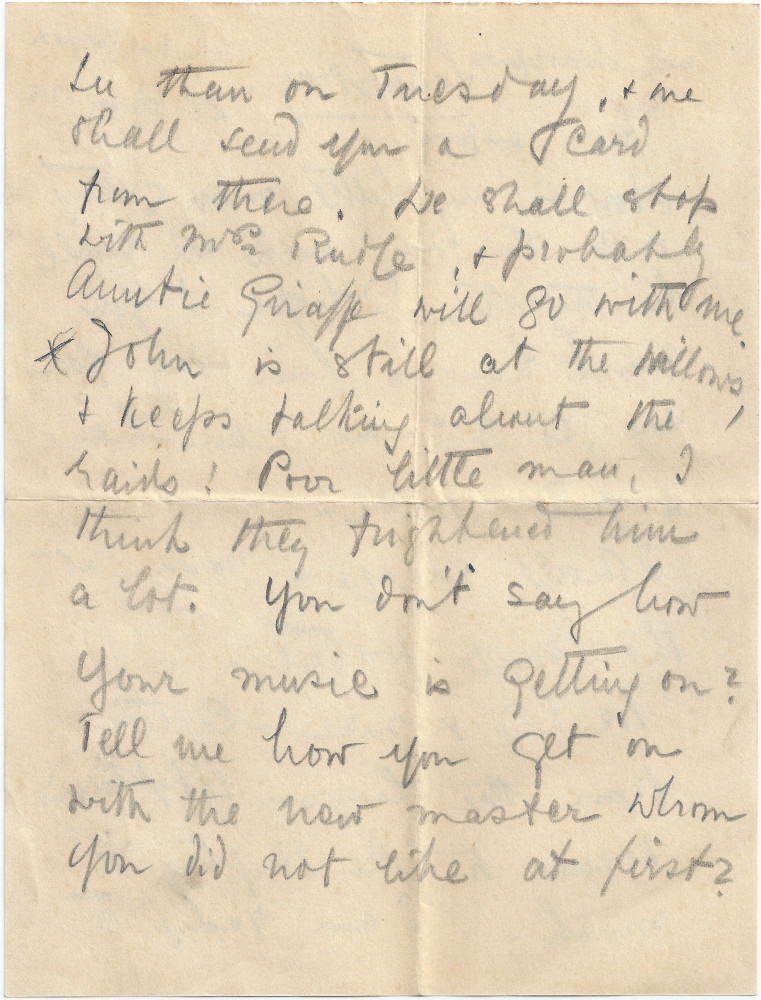 than on Tuesday, & we
shall send you a card
from there. We shall stop
with Mrs. Rudge, & probably
Auntie Giraffe will go with me.
x John is still at the Willows,
& keeps talking about the
raids! Poor little man, I
think they frightened him
a lot. You don't say how
your music is getting on?
Tell me how you get on
with the new master whom
you did not like at first?